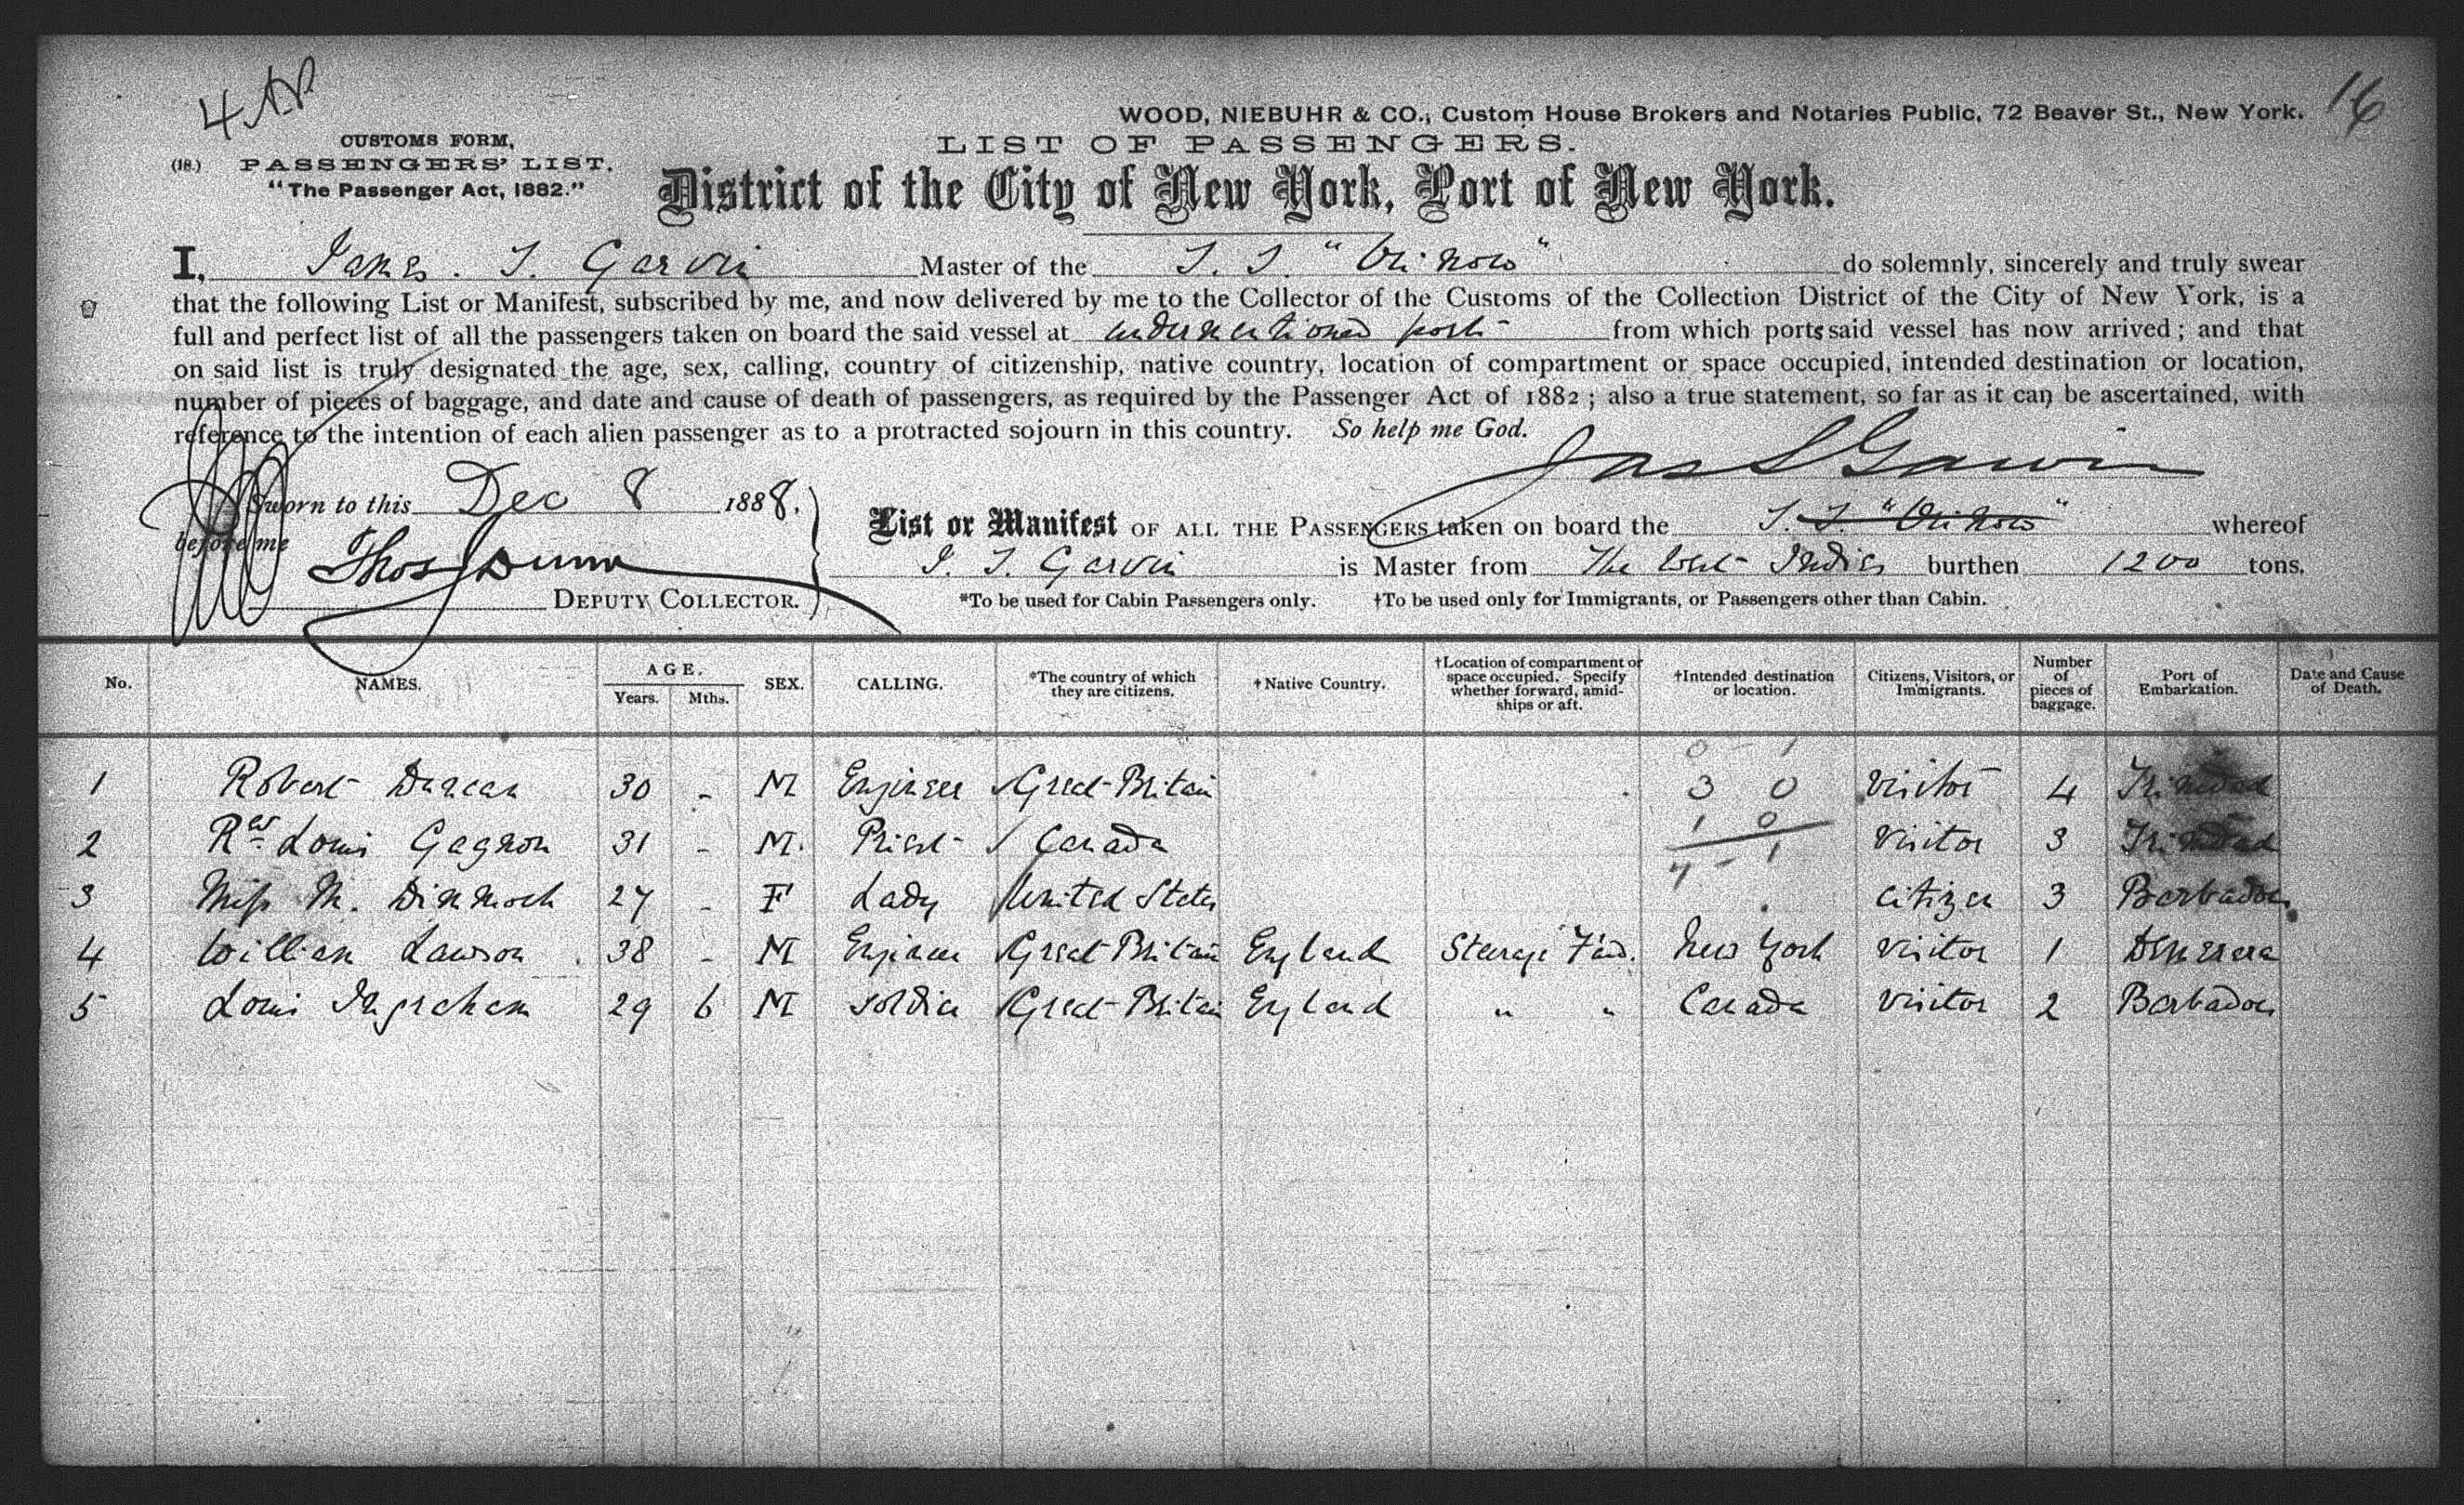 4
16
WOOD, NIEBUHR & CO., Custom House Brokers and Notaries Public, 72 Beaver St., New York.
CUSTOMS FORM,
(18.) PASSENGERS' LIST.
"The Passenger Act, 1882."
LIST OF PASSENGERS.
District of the City of New York, Port of New York.
I, James. S. Garvin Master of the S. S. "Orinoco" do solemnly, sincerely and truly swear
that the following List or Manifest, subscribed by me, and now delivered by me to the Collector of the Customs of the Collection District of the City of New York, is a
full and perfect list of all the passengers taken on board the said vessel at undermentioned ports from which ports said vessel has now arrived; and that
on said list is truly designated the age, sex, calling, country of citizenship, native country, location of compartment or space occupied, intended destination or location,
number of pieces of baggage, and date and cause of death of passengers, as required by the Passenger Act of 1882; also a true statement, so far as it can be ascertained, with
reference to the intention of each alien passenger as to a protracted sojourn in this country. So help me God.
Jas S Garvin
Sworn to this Dec 8 1888.
before me Thos J Dunn
DEPUTY COLLECTOR.
List or Manifest OF ALL THE PASSENGERS taken on board the S. S. "Orinoco" whereof
J. S. Garvin is Master from The West Indies burthen 1200 tons.
*To be used for Cabin Passengers only. †To be used only for Immigrants, or Passengers other than Cabin.
No. NAMES. AGE. Years. Mths. SEX. CALLING. *The country of which they are citizens. †Native Country. †Location of compartment or space occupied. Specify whether forward, amidships or aft. †Intended destination or location. Citizens, Visitors, or Immigrants. Number of pieces of baggage. Port of Embarkation. Date and Cause of Death.
0 - 1
1 Robert Duncan 30 - M Engineer Great Britain 3 0 Visitor 4 Trinidad
1 0
2 Rev Louis Gagnon 31 - M. Priest Canada Visitor 3 Trinidad
4 - 1
3 Miss M. Dinmock 27 - F Lady United States citizen 3 Barbados
4 William Lawson 38 - M Engineer Great Britain England Steerage Fwd. New York Visitor 1 Demerara
5 Louis Ingraham 29 6 M soldier Great Britain England " " Canada Visitor 2 Barbados